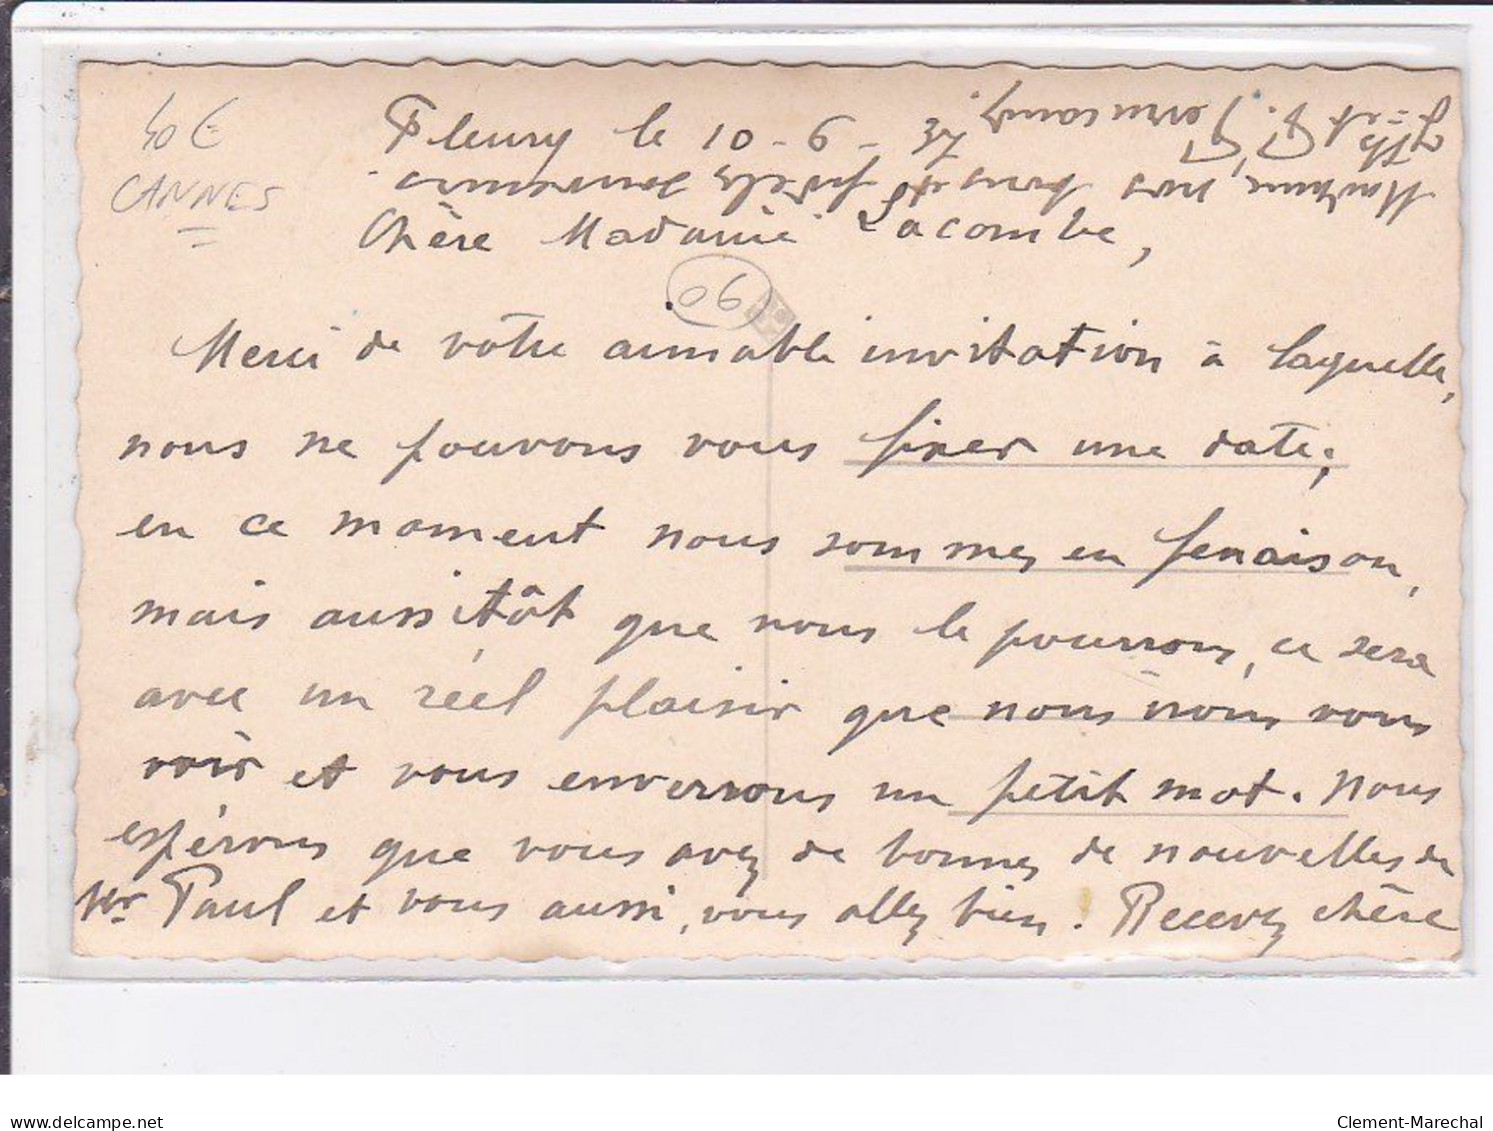 40 €
CANNES
Fleury le 10 - 6 - 37
Chère Madame Lacombe,
06
Merci de votre aimable invitation à laquelle,
nous ne pouvons vous fixer une date;
en ce moment nous sommes en fenaison,
mais aussitôt que nous le pourrons, ce sera
avec un réel plaisir que nous irons vous
voir et vous enverrons un petit mot. Nous
espérons que vous avez de bonnes de nouvelles de
Mr Paul et vous aussi, vous allez bien. Recevez chère
Madame, nos bons et fidèles souvenirs.
delcampe.net
Clement-Marechal